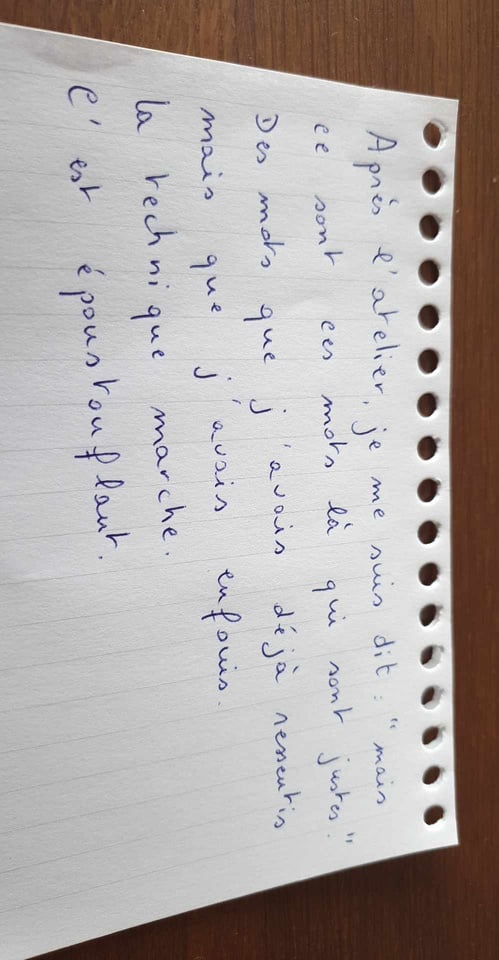 Après l'atelier, je me suis dit : "mais
ce sont ces mots là qui sont justes."
Des mots que j'avais déjà ressentis
mais que j'avais enfouis.
la technique marche.
C'est époustouflant.